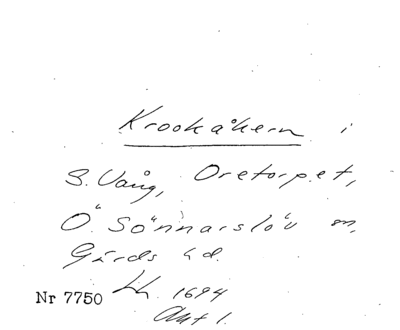 Krookåkern i
S. Vång, Oretorpet,
Ö. Sönnarslöv sn,
Gärds hd.
Nr 7750 Lh. 1694
Akt 1.